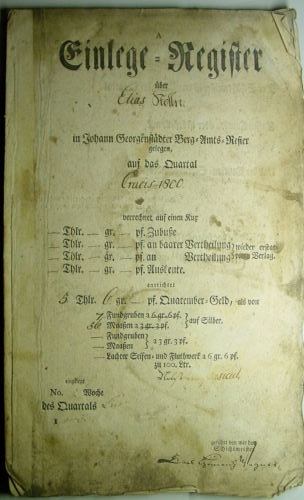 A
Einlege-Register
über
Elias
in Johann Georgenstädter Berg-Amts-Refier
gelegen,
auf das Quartal
Crucis 1800
verrechnet auf einen Kux
— Thlr. — gr. — pf. Zubuße
— Thlr. — gr. — pf. an baarer Vertheilung
— Thlr. — gr. — pf. an Vertheilung
wieder erstat-
Verlag.
— Thlr. — gr. — pf. Ausbeute.
entrichtet
5 Thlr. 6 gr. — pf. Quatember-Geld, als von
7 Fundgruben a 6 gr. 6 pf.
36 Maaßen a 3 gr. 3 pf.
auf Silber.
— Fundgruben
— Maaßen
a 3 gr. 3 pf.
— Lachter Seifen- und Fluthwerk a 6 gr. 6 pf.
zu 100. Ltr.
No. Woche
des Quartals
geführt von mir dem
Schichtmeister